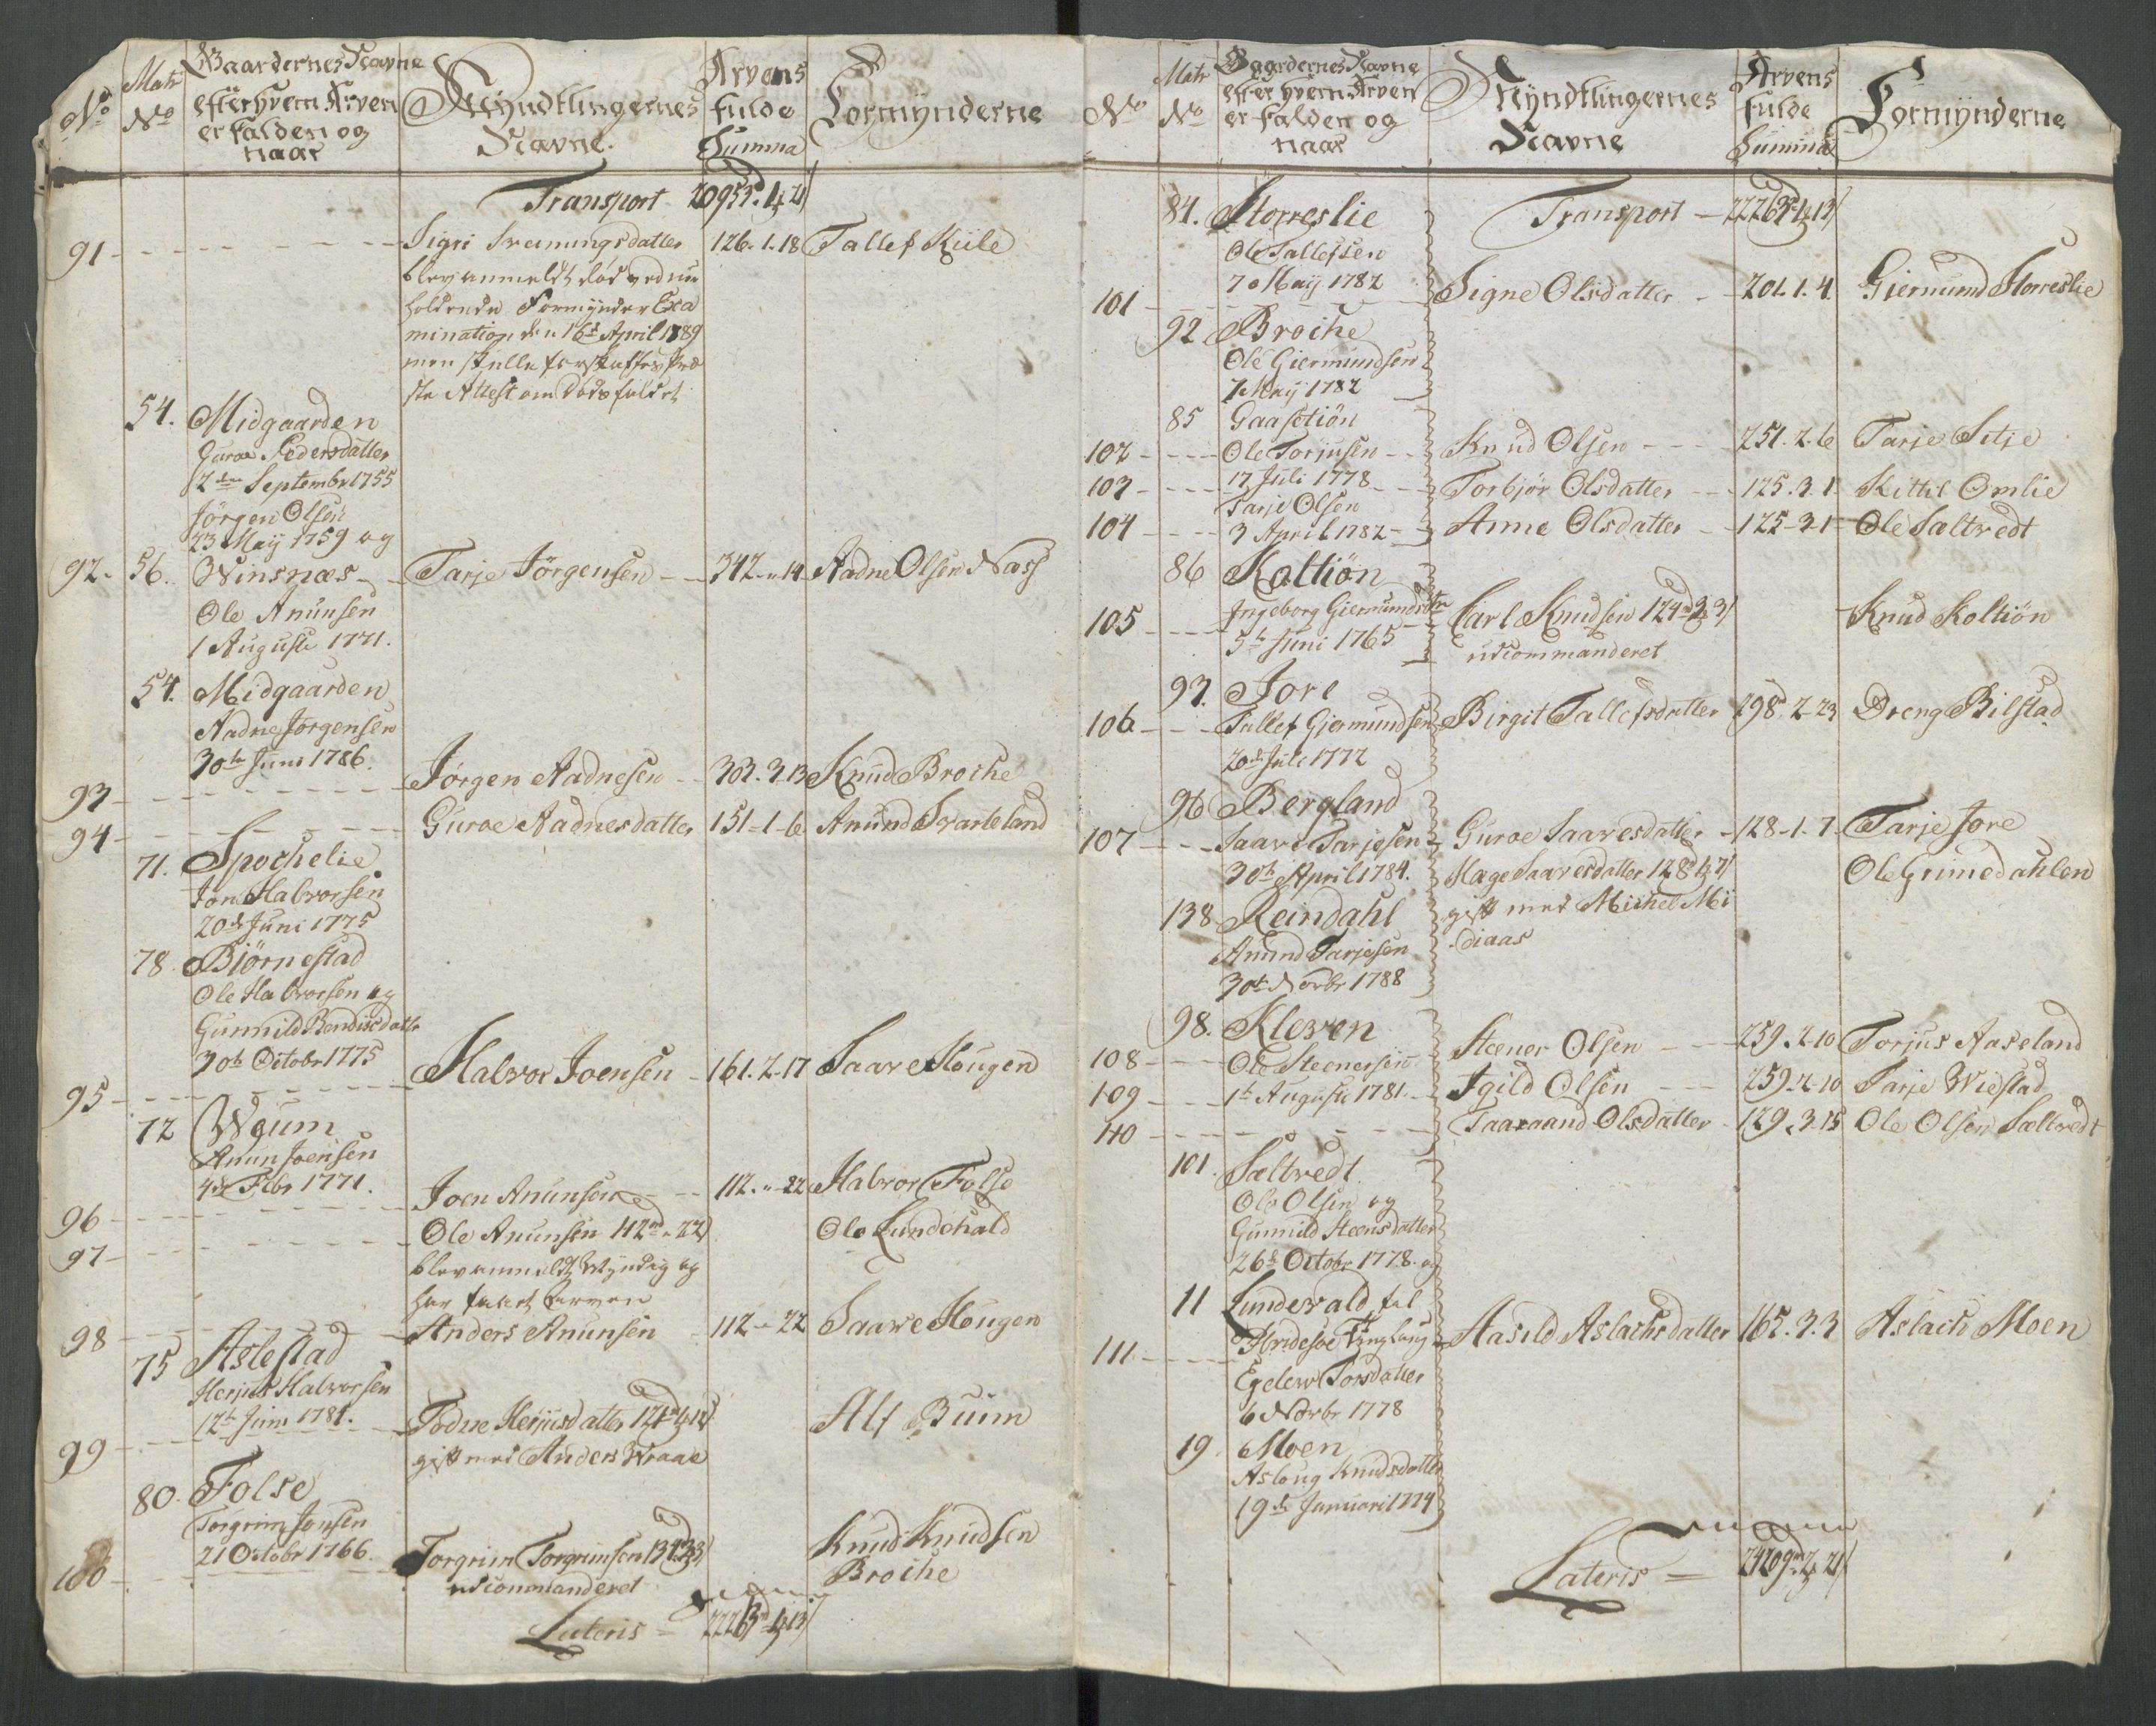 No
Matr No
Gaardernes Navne
efter hvem Arven
er falden og
naar
Myndtlingernes
Navne.
Arvens
fulde
Summa
Formynderne
Transport 20953. 1. 21
91 Sigri Sveinungsdatter 126. 1. 18 Tallef Kiile
blev anmeldt død ved nu
holdende Formynder Exa
mination den 16de April 1789
men skulle forskaffes Præ
ste Attest om dødsfaldet
54. Midgaarden
Guroe Pedersdatter
2den Septembr 1755
Jørgen Olsen
23 Maij 1759 og
92. 56. Winsnæs Tarje Jørgensen 342 " 14 Aadne Olsen Næss
Ole Anunsen
1 Auguste 1771.
54. Midgaarden
Aadne Jørgensen
30te Juni 1786.
93 Jørgen Aadnesen 303. 3. 13 Knud Broche
94 Guroe Aadnesdatter 151-1-6 Anund Svarteland
71. Spochelie
Jon Halvorsen
20de Juni 1775
78. Biørnestad
Ole Halvorsen og
Gunnild Bendixdatter
30te Octobr 1775
95 Halvor Joensen 161. 2. 17 Saave Hougen
72 Wgum
Anun Joensen
4de Febr 1771.
96 Joen Anunsen 112. " 22 Halvor Folse
97 Ole Anunsen 112rd " 22 Ole Lundevald
blev anmeldt Myndig og
har faaet Arven
98 Anders Anunsen 112 " 22 Saave Hougen
75 Aslestad
Herjus Halvorsen
12te Juni 1781.
99 Todne Herjusdatter 121. 1. 18 Alf Buim
gift med Anders Wraae
80. Folse
Torgrim Jonsen
21 Octobr 1766.
100 Torgrim Torgrimsen 134. 3. 3 Knud Knudsen
udcommanderet Broche
Lateris = 22263 1. 13
No
Matr No
Gaardernes Navne
efter hvem Arven
er falden og
naar
Myndtlingernes
Navne
Arvens
fulde
Summa
Formynderne
84. Storreslie Transport 22263. 1. 13
Ole Tallefsen
7 Maij 1782
101 Signe Olsdatter 201. 1. 4. Giermund Storreslie
92 Broche
Ole Giermundsen
7 Maij 1782
85 Gaasetiøn
102 Ole Torjusen Knud Olsen 251. 2. 6 Tarje Sitje
17 Juli 1778
103 Torbjør Olsdatter 125. 3. 1. Kittil Omlie
Tarje Olsen
104 3 April 1782 Anne Olsdatter 125-3-1 Ole Saltvedt
86 Koltiøn
105 Ingeborg Giermundsdtr Carl Knudsen 124. 3. 3 Knud Koltiøn
5te Juni 1765 udcommanderet
93. Jore
106 Tallef Gjermundsen Birgit Tallefsdatter 298. 2-23 Dreng Bilstad
20de Juli 1772
96 Bergland
107 Saave Tarjesen Guroe Saavesdatter 128-1. 7. Tarje Jore
30te April 1784. Hæge Saavesdatter 128. 1. 7 Ole Grimedahlen
138 Reindahl gift med Michel Mi
Anund Tarjesen diaas
30te Novbr 1788
98. Kleven
108 Ole Steenersen Steener Olsen 259. 2-10 Torjus Aaseland
109 1te Auguste 1781. Igild Olsen 259-2-10 Tarje Widstad
110 Taaraand Olsdatter 129. 3. 15 Ole Olsen Sæltvedt
101. Sæltvedt
Ole Olsen og
Gunnild Steensdatter
26de Octobr 1778. og
11 Lundevald fal
111 Aasild Aslachsdatter 165. 3. 3 Aslach Moen
Egelew Torsdatter
6 Novbr 1778
19. Moen
Asloug Knudsdatter
19de Januari 1774
Lateris = 24209. 2. 21